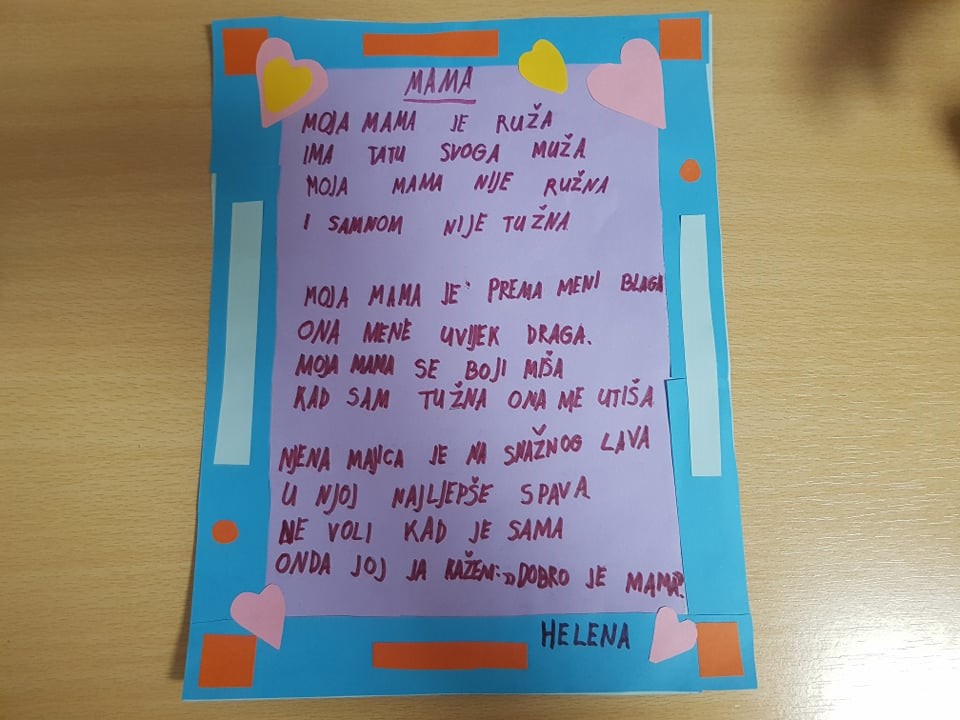 MAMA
MOJA MAMA JE RUŽA
IMA TATU SVOGA MUŽA
MOJA MAMA NIJE RUŽNA
I SAMNOM NIJE TUŽNA
MOJA MAMA JE PREMA MENI BLAGA
ONA MENE UVIJEK DRAGA.
MOJA MAMA SE BOJI MIŠA
KAD SAM TUŽNA ONA ME UTIŠA
NJENA MAJICA JE NA SNAŽNOG LAVA
U NJOJ NAJLJEPŠE SPAVA
NE VOLI KAD JE SAMA
ONDA JOJ JA KAŽEM: „DOBRO JE MAMA."
HELENA